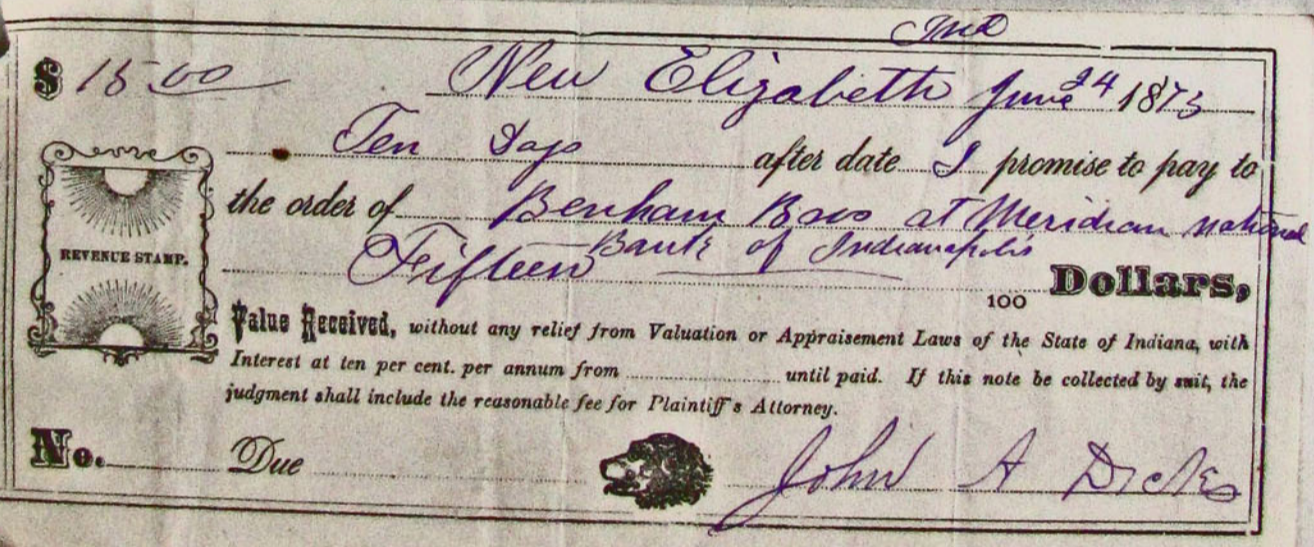 Ind
$ 15.00 New Elizabeth June 24 1873
Ten Days after date I promise to pay to
the order of Benham Bros at Meridian national
Bank of Indianapolis
Fifteen 100 Dollars,
REVENUE STAMP.
Value Received, without any relief from Valuation or Appraisement Laws of the State of Indiana, with
Interest at ten per cent. per annum from until paid. If this note be collected by suit, the
judgment shall include the reasonable fee for Plaintiff's Attorney.
No. Due John A Dicks